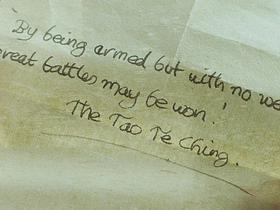 'By being armed but with no we
great battles may be won.'
The Tao Te Ching.